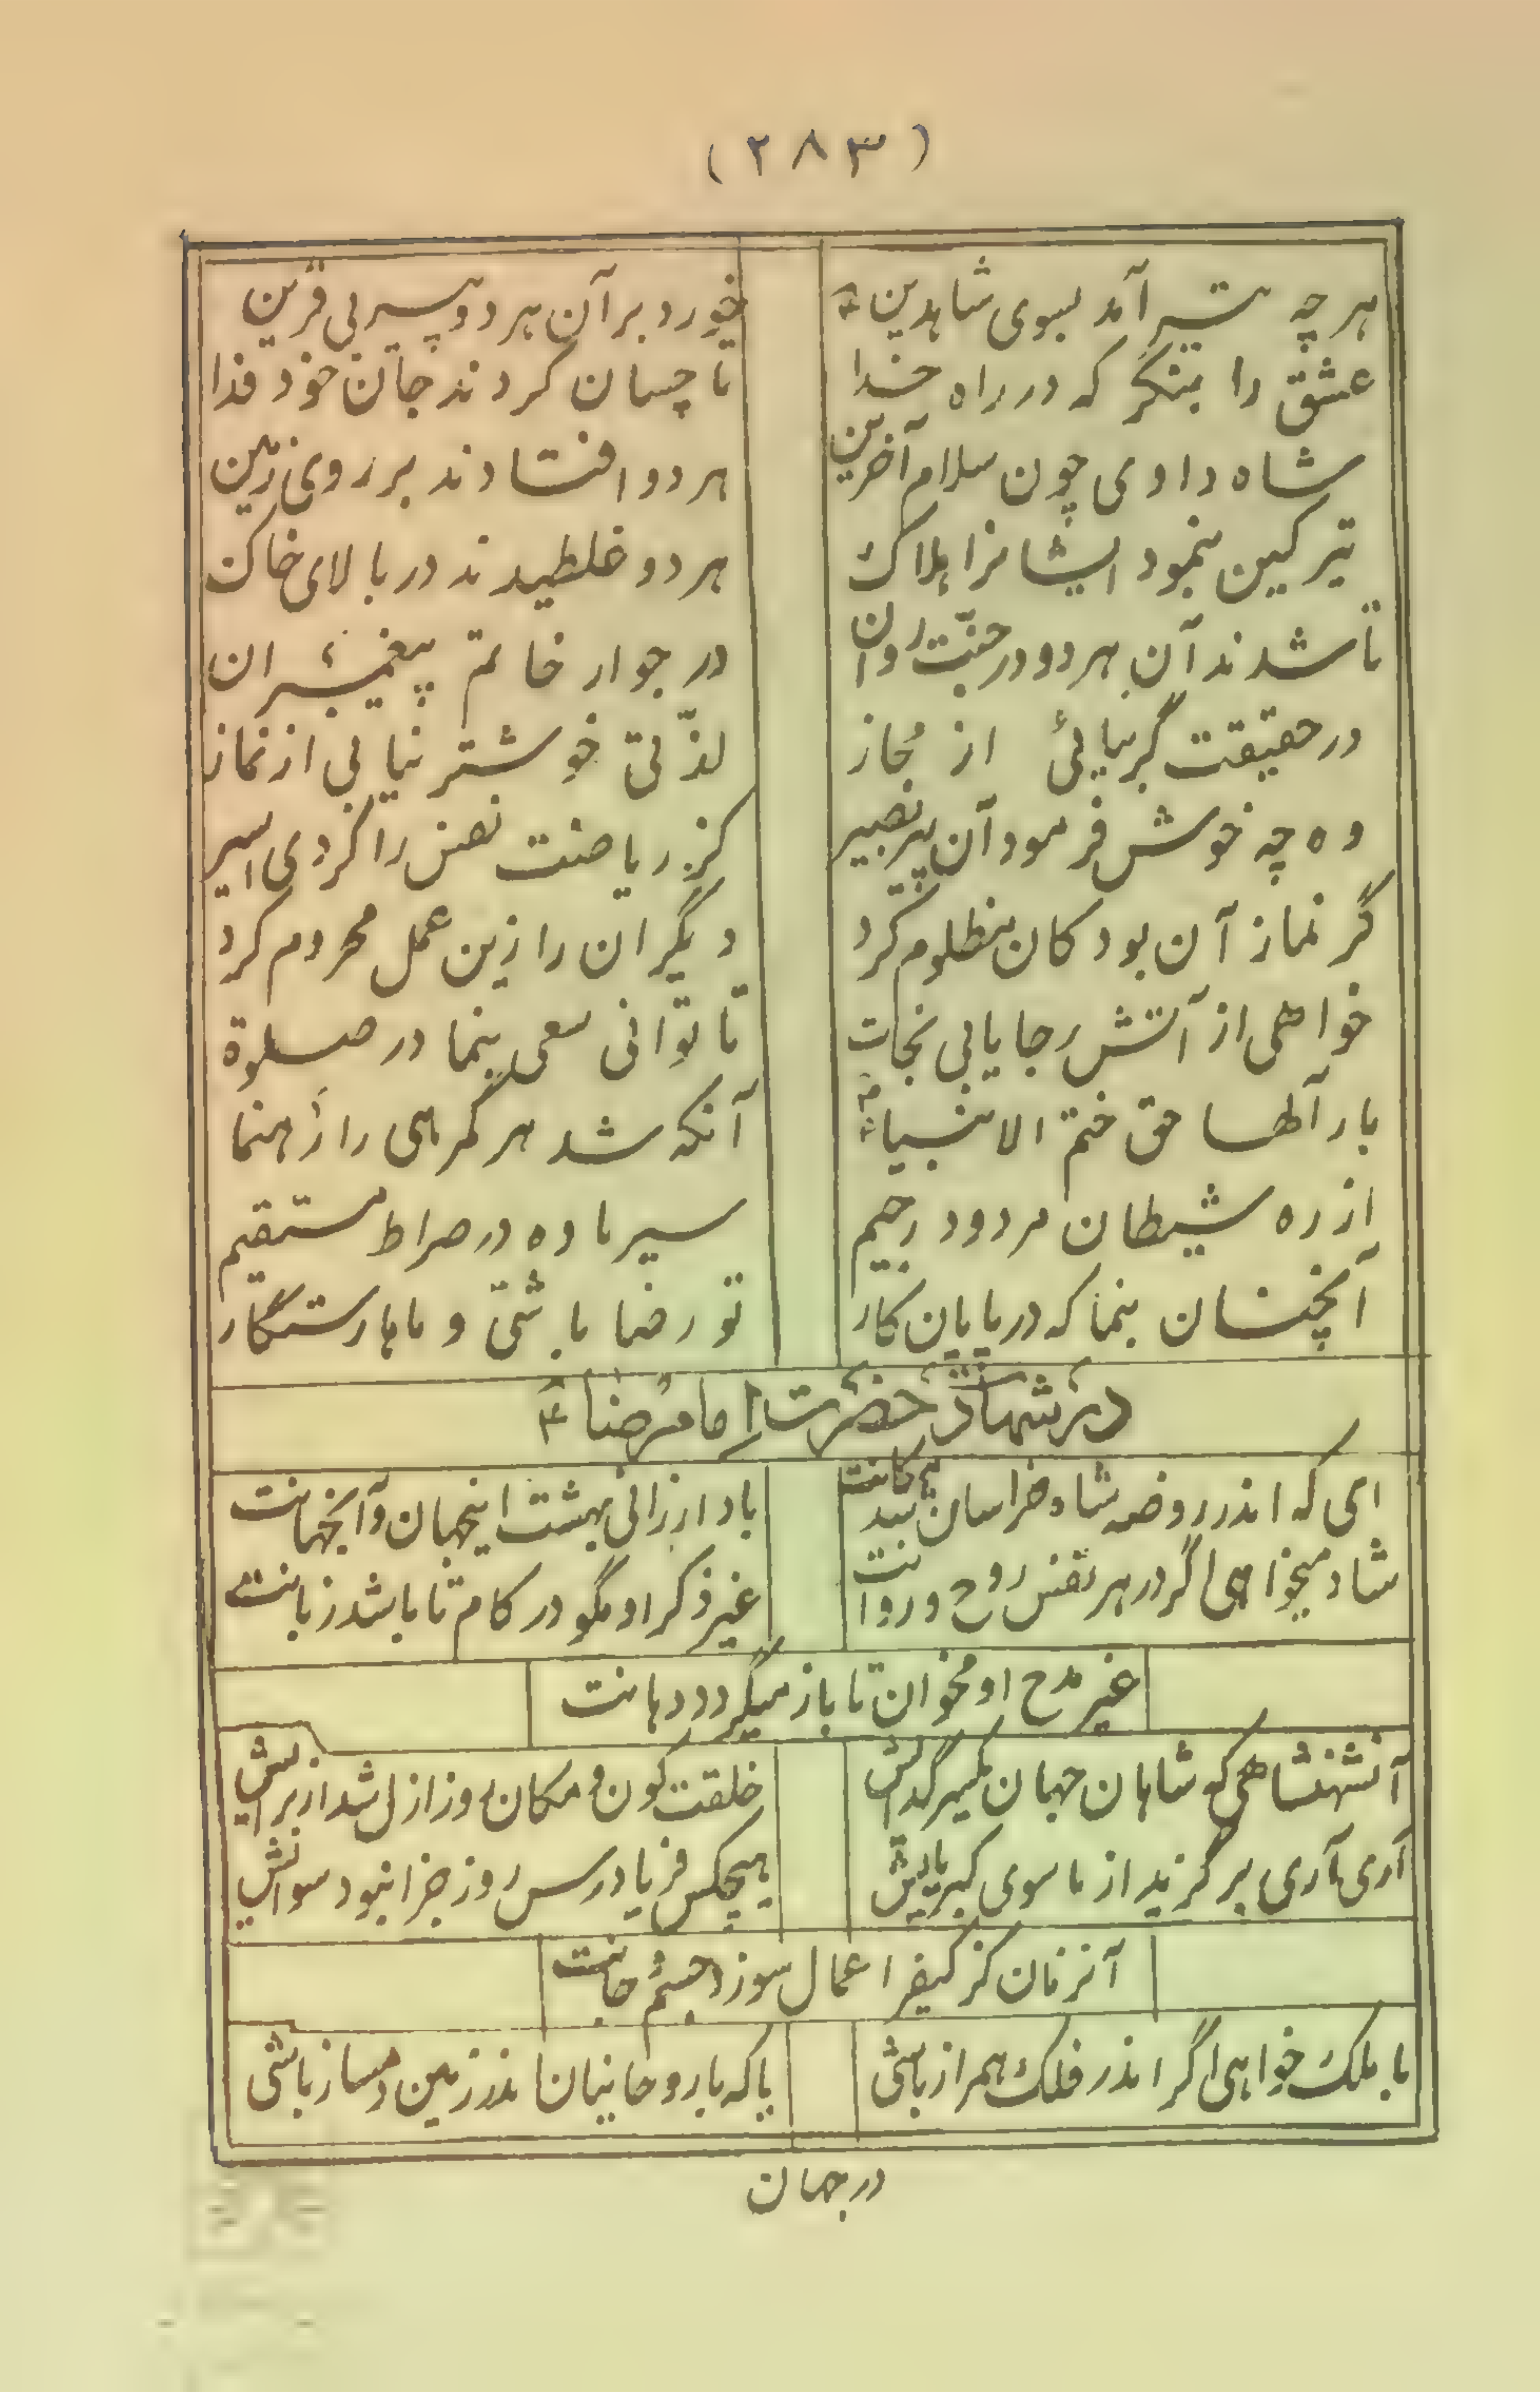 (۲۸۳)
هر چه تیر آمد بسوی شاهدین
خورد بر آن هر دو پیر بی قرین
عشق را بنگر که در راه خدا
تا چسان کردند جان خود فدا
شاه دادی چون سلام آخرین
هر دو افتادند بر روی زمین
تیر کین بنمود ایشانرا هلاک
هر دو غلطیدند در بالای خاک
تا شدند آن هر دو در جنّت روان
در جوار خاتم پیغمبران
در حقیقت گر بیائی از مجاز
لذّتی خوشتر نیابی از نماز
وه چه خوش فرمود آن پیر بصیر
کز ریاضت نفس را کردی اسیر
گر نماز آن بود کان مظلوم کرد
دیگران را زین عمل محروم کرد
خواهی از آتش رجا یابی نجات
تا توانی سعی بنما در صلوة
بار آلها حق ختم الانبیاء
آنکه شد هر گمرهی را رهنما
از ره شیطان مردود رجیم
سیر ما ده در صراط مستقیم
آنچنان بنما که در پایان کار
تو رضا باشیّ و ماها رستگار
در شهادت حضرت امام رضا ع
ای که اندر روضه شاه خراسان شد مکانت
باد ارزانی بهشت اینجهان و آنجهانت
شاد میخواهی اگر در هر نفس روح و روانت
غیر ذکر او مگو در کام تا باشد زبانت
غیر مدح او مخوان تا باز میگردد دهانت
آنشهنشاهی که شاهان جهان یکسر گدایش
خلقت کون و مکان روز ازل شد از برایش
آری آری برگزید از ماسوی کبریایش
هیچکس فریادرس روز جزا نبود سوایش
آنزمان کز کیفر اعمال سوزد جسم و جانت
با ملک خواهی اگر اندر فلک همراز باشی
یا که با روحانیان اندر زمین دمساز باشی
در جهان